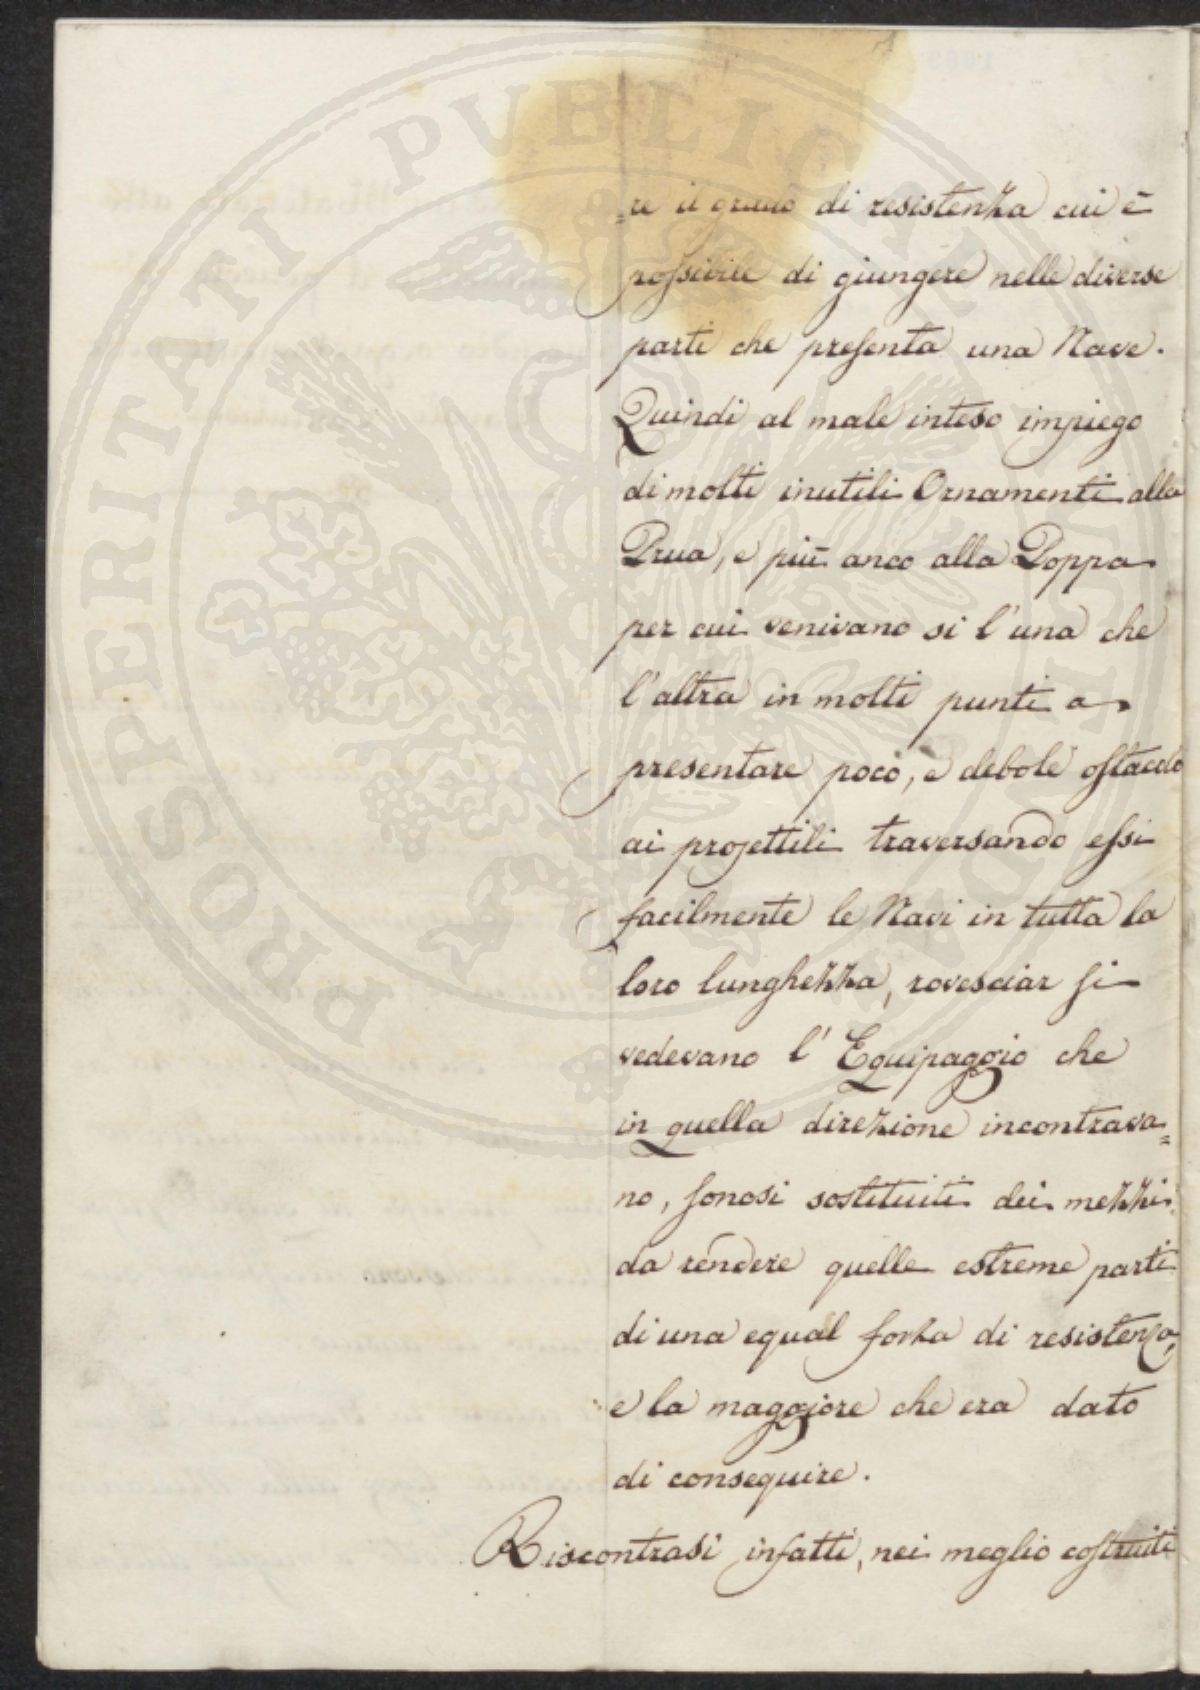 =re il grado di resistenza cui è
possibile di giungere nelle diverse
parti che presenta una Nave.
Quindi al male inteso impiego
di molti inutili Ornamenti alla
Prua, e più anco alla Poppa
per cui venivano sì l'una che
l'altra in molti punti a
presentare poco, e debole ostacolo
ai projettili traversando essi
facilmente le Navi in tutta la
loro lunghezza, rovesciar si
vedevano l'Equipaggio che
in quella direzione incontrava=
no, sonosi sostituiti dei mezzi
da rendere quelle estreme parti
di una equal forza di resistenza,
e la maggiore che era dato
di conseguire.
Riscontrasi infatti, nei meglio costruiti
PROSPERITATI PUBLICAE